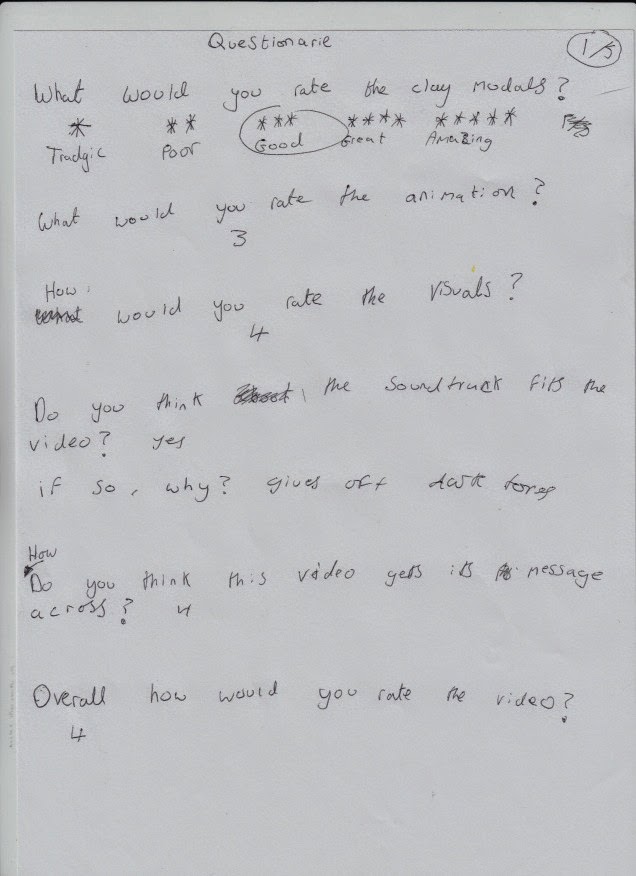 Questionarie
1/5
What would you rate the clay modals?
* ** *** **** *****
Tradgic Poor Good Great Amazing
What would you rate the animation?
3
How
would you rate the visuals?
4
Do you think the Soundtrack fits the
video? yes
if so, why? gives off dark tones
How
Do you think this video gets its message
across? 4
Overall how would you rate the video?
4